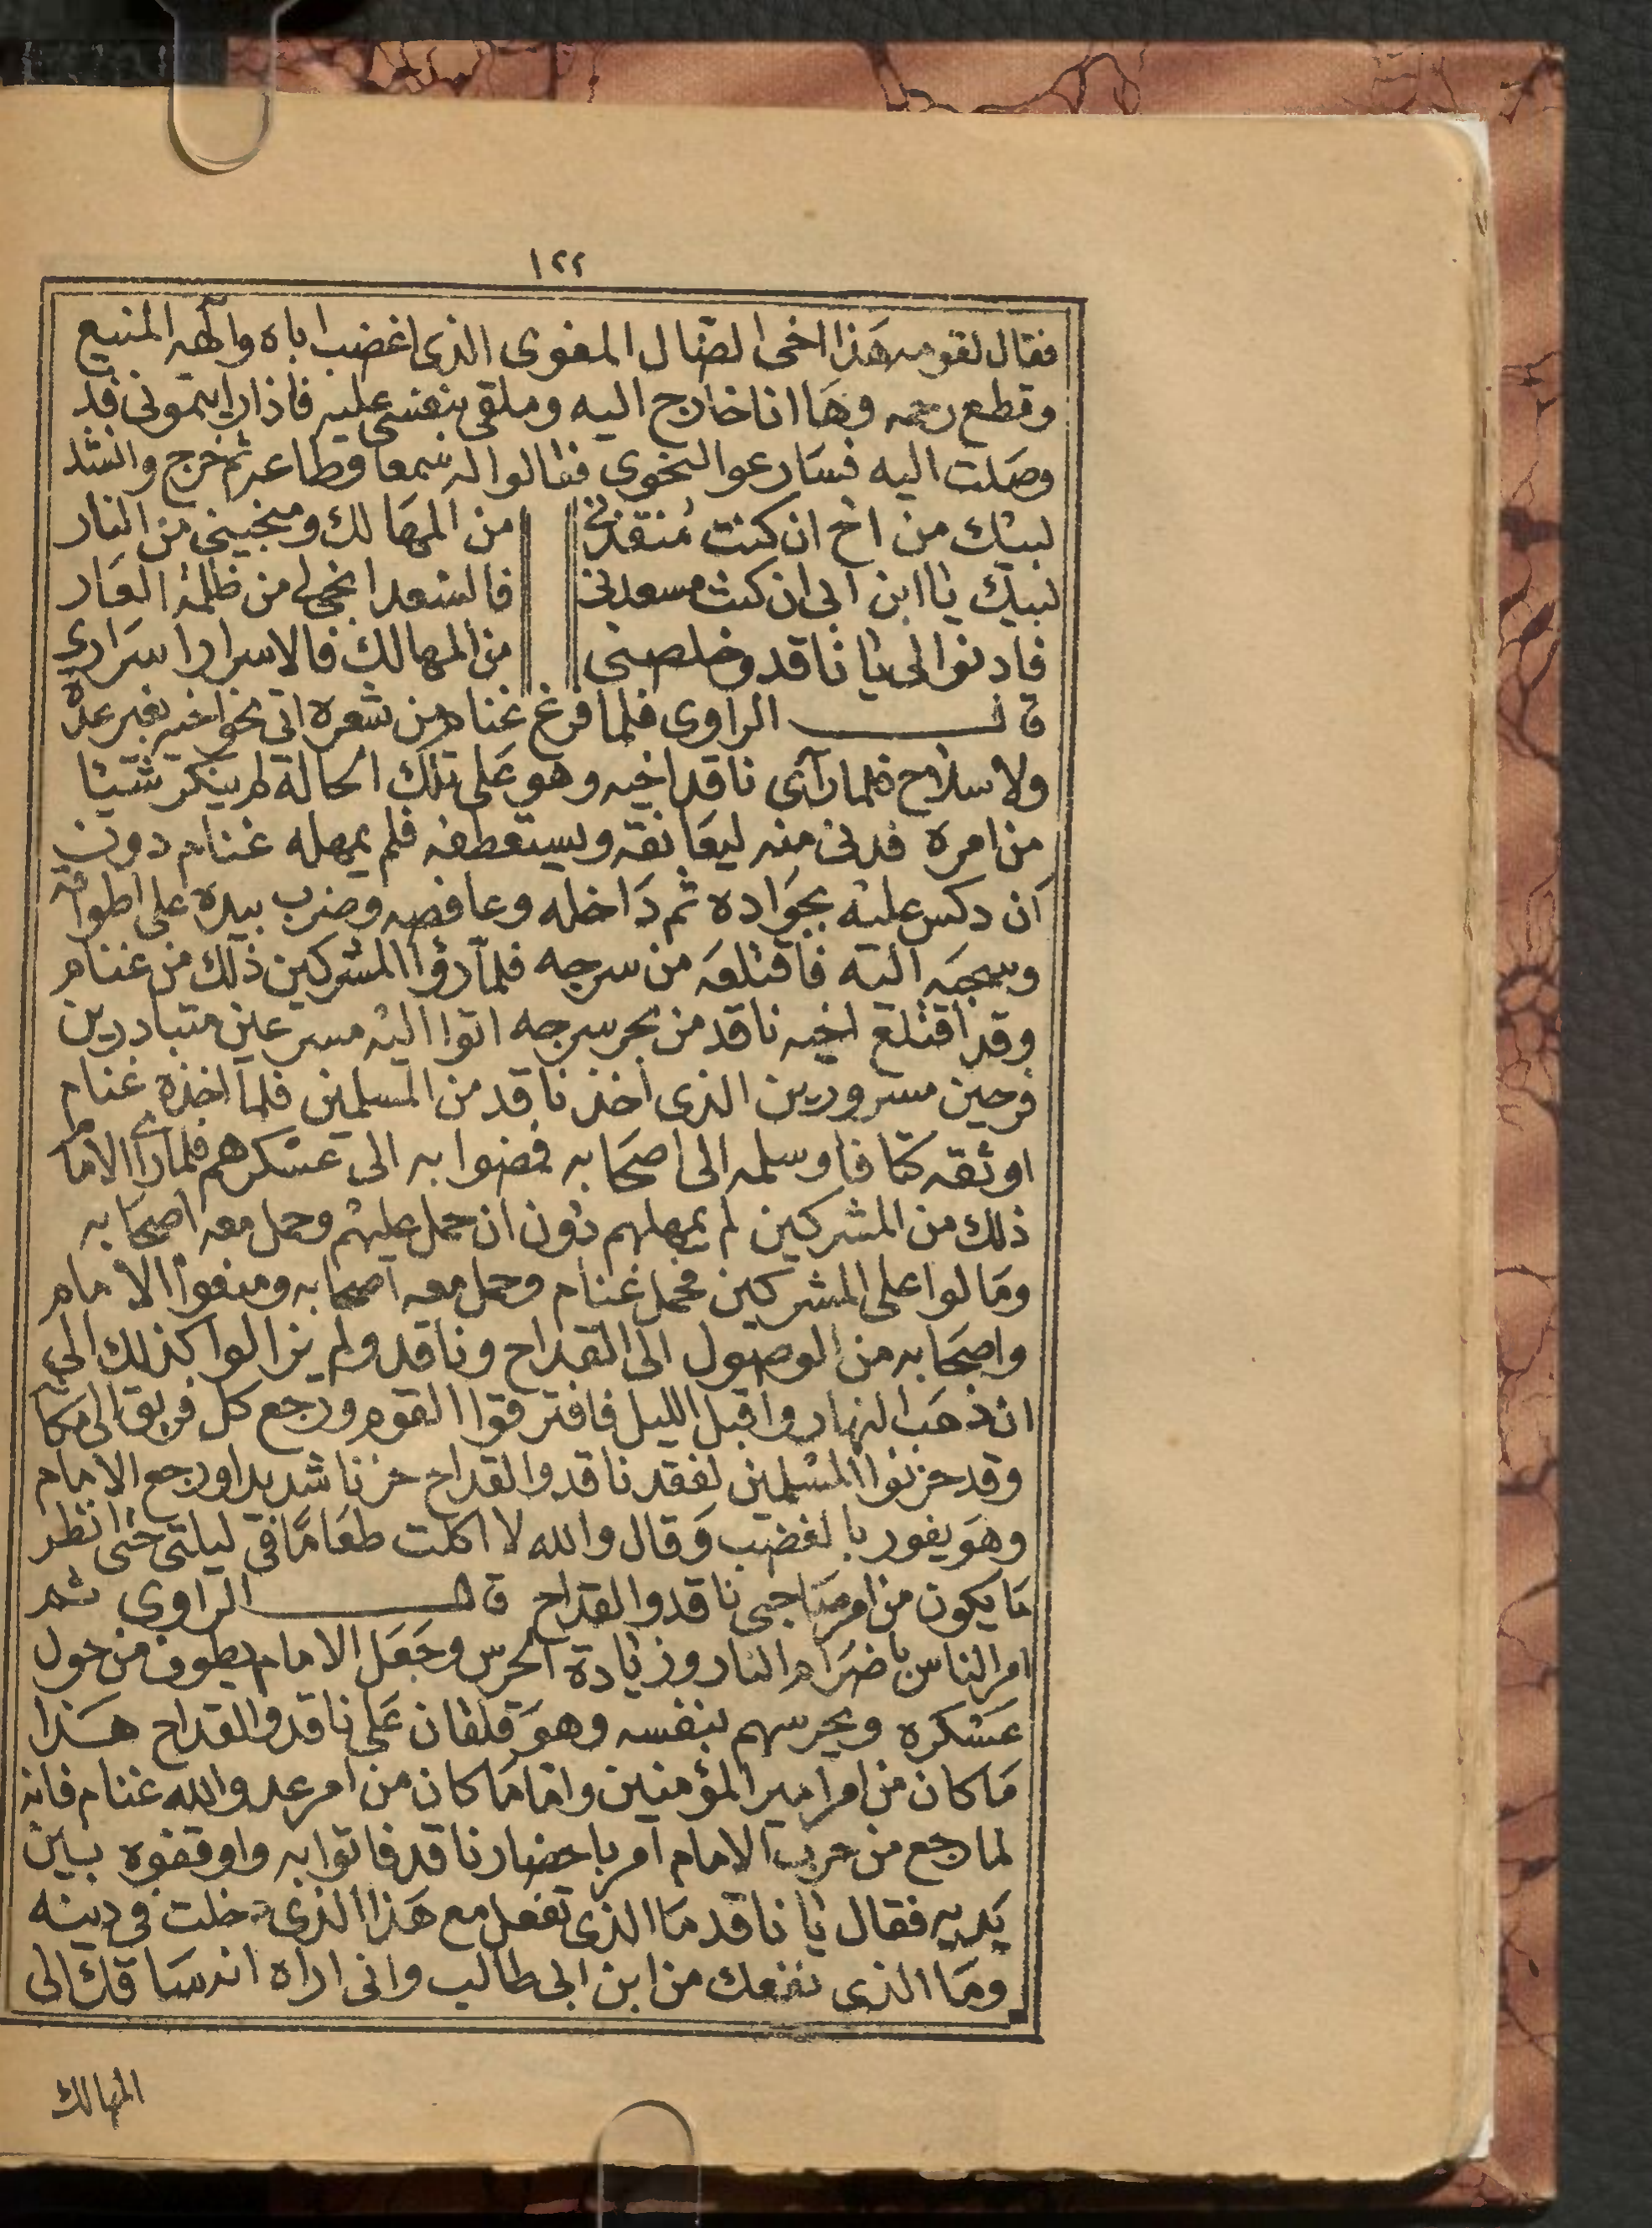 ١٢٢
فقال لقومه هذا اخى الضال المغوى الذى اغضب اباه والهه المنيع
وقطع رحمه وها انا خارج اليه وملقى بنفسى عليه فاذا رايتمونى قد
وصلت اليه فسارعوا الى نحوى فقالوا له سمعا وطاعه ثم خرج وانشد
لبيك من اخ ان كنت منقذنى من المهالك ومنجينى من النار
لبيك يا ابن ابى ان كنت مسعدنى فالسعد انجى لى من ظلمة العار
فادنوا الى يا ناقد وخلصنى من المهالك فالاسرار اسرارى
قال الراوى فلما فرغ غنام من شعره اتى نحو اخيه بغير عدة
ولا سلاح فلما رآى ناقد اخيه وهو على تلك الحالة لم ينكر شيئا
من امره فدنى منه ليعانقه ويستعطفه فلم يمهله غنام دون
ان دكس عليه بجواده ثم داخله وعافصه وضرب بيده على اطواقه
وسحبه اليه فاقتلعه من سرجه فلما رؤا المشركين ذلك من غنام
وقد اقتلع اخيه ناقد من بحر سرجه اتوا اليه مسرعين متبادرين
فرحين مسرورين الذى اخذ ناقد من المسلمين فلما اخذه غنام
اوثقه كتافا وسلمه الى اصحابه فمضوا به الى عسكرهم فلما راى الامام
ذلك من المشركين لم يمهلهم دون ان حمل عليهم وحمل معه اصحابه
ومالوا على المشركين فحمل غنام وحمل معه اصحابه ومنعوا الامام
واصحابه من الوصول الى القداح وناقد ولم يزالوا كذلك الى
ان ذهب النهار واقبل الليل فافترقوا القوم ورجع كل فريق الى مكانه
وقد حزنوا المسلمين لفقد ناقد والقداح حزنا شديدا ورجع الامام
وهو يفور بالغضب وقال والله لا اكلت طعاما فى ليلتى حتى انظر
ما يكون من امر صاحبى ناقد والقداح قال الراوى ثم
امر الناس باضرام النار وزيادة الحرس وجعل الامام يطوف من حول
عسكره ويحرسهم بنفسه وهو قلقان على ناقد والقداح هذا
ما كان من امر امير المؤمنين واما ما كان من امر عدو الله غنام فانه
لما رجع من حرب الامام امر باحضار ناقد فاتوا به واوقفوه بين
يديه فقال يا ناقد ما الذى تفعل مع هذا الذى دخلت فى دينه
وما الذى نفعك من ابن ابى طالب وانى اراه انه ساقك الى
المهالك